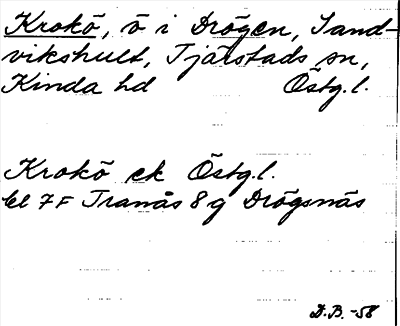 Krokö, ö i Drögen, Sand-
vikshult, Tjärstads sn,
Kinda hd Östg.l.
Krokö ek Östg.l.
bl 7F Tranås 8g Drögsnäs
D.B. -58